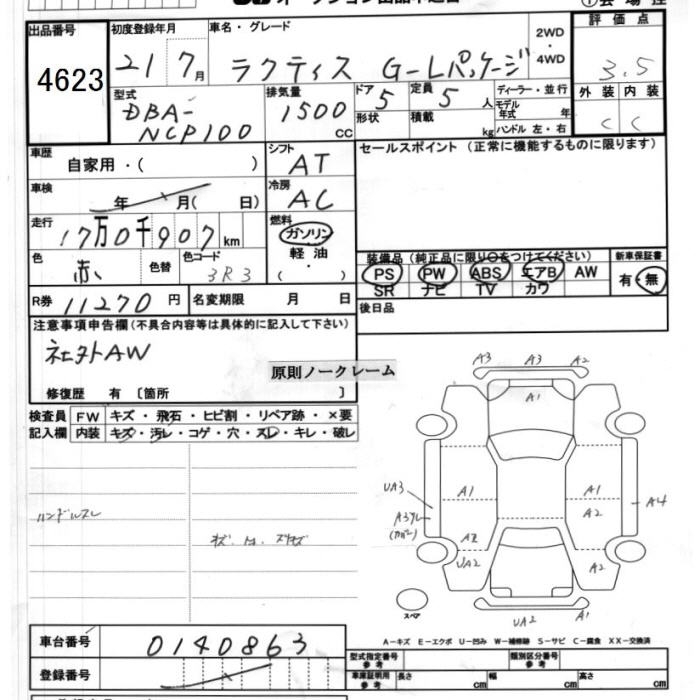 出品番号
4623
初度登録年月
21 7月
車名・グレード
ラクティス G-Lパッケージ
2WD
・
4WD
評価点
3.5
外装 内装
C C
型式
DBA-
NCP100
排気量
1500
cc
ドア
5
定員
5
人
形状
積載
kg
ディーラー・並行
モデル
年式
年
ハンドル 左・右
車歴
自家用・( )
シフト
AT
セールスポイント (正常に機能するものに限ります)
車検
年 月( 日)
冷房
AC
走行
17万0千907km
燃料
ガソリン
・
軽油
( )
色
赤
色替
色コード
3R3
装備品 (純正品に限り○をつけてください)
PS PW ABS エアB AW
SR ナビ TV カワ
新車保証書
有・無
R券 11270 円
名変期限 月 日
後日品
注意事項申告欄(不具合内容等は具体的に記入して下さい)
社外AW
原則ノークレーム
修復歴 有 〔箇所 〕
検査員
記入欄
FW キズ・飛石・ヒビ割・リペア跡・×要
内装 キズ・汚レ・コゲ・穴・スレ・キレ・破レ
ハンドルスレ
A3 A3 A2
A1
UA3
A1
A1
A2
A4
A2
UA2
A2
スペア
UA2
A1
A-キズ E-エクボ U-凹み W-補修跡 S-サビ C-腐食 XX-交換済
車台番号
0140863
登録番号
型式指定番号
参考
類別区分番号
参考
車庫証明用
参考
長さ cm 幅 cm 高さ cm